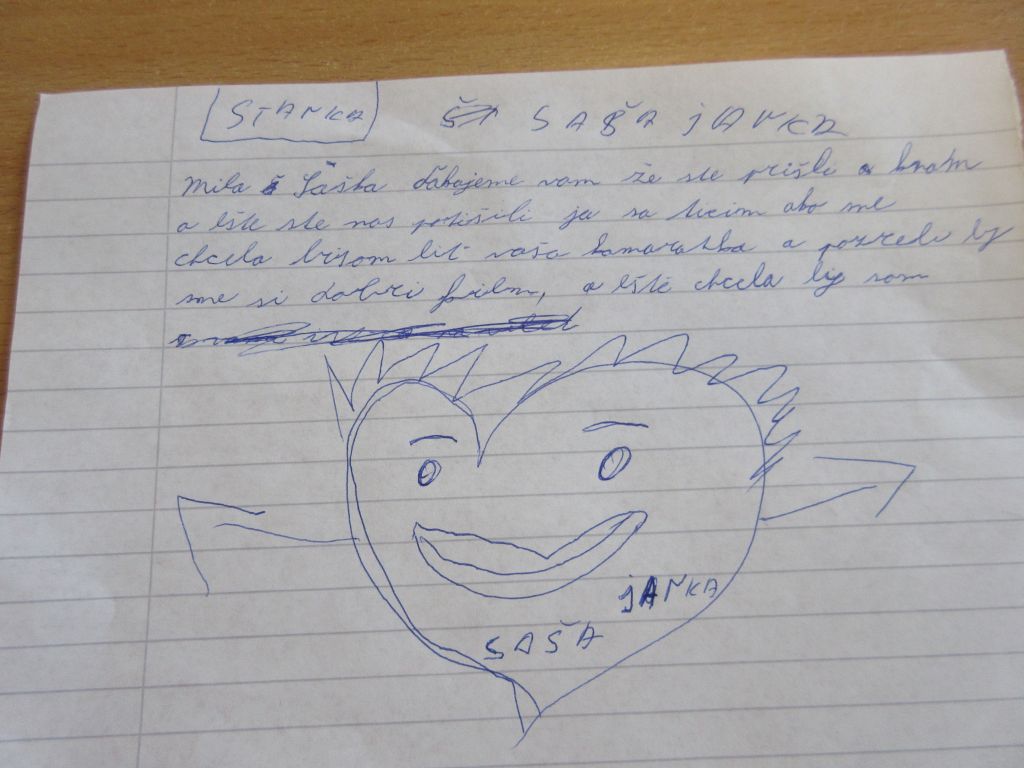 STANKA SAŠA JANKA
Mila Saška ďakujeme vam že ste prišli a knam
a ešte ste nas potišili ja sa ticim abo sme
chcela bisom bit vaša kamaratka a pozreli by
sme si dobri film, a ešte chcela by som
JANKA
SAŠA